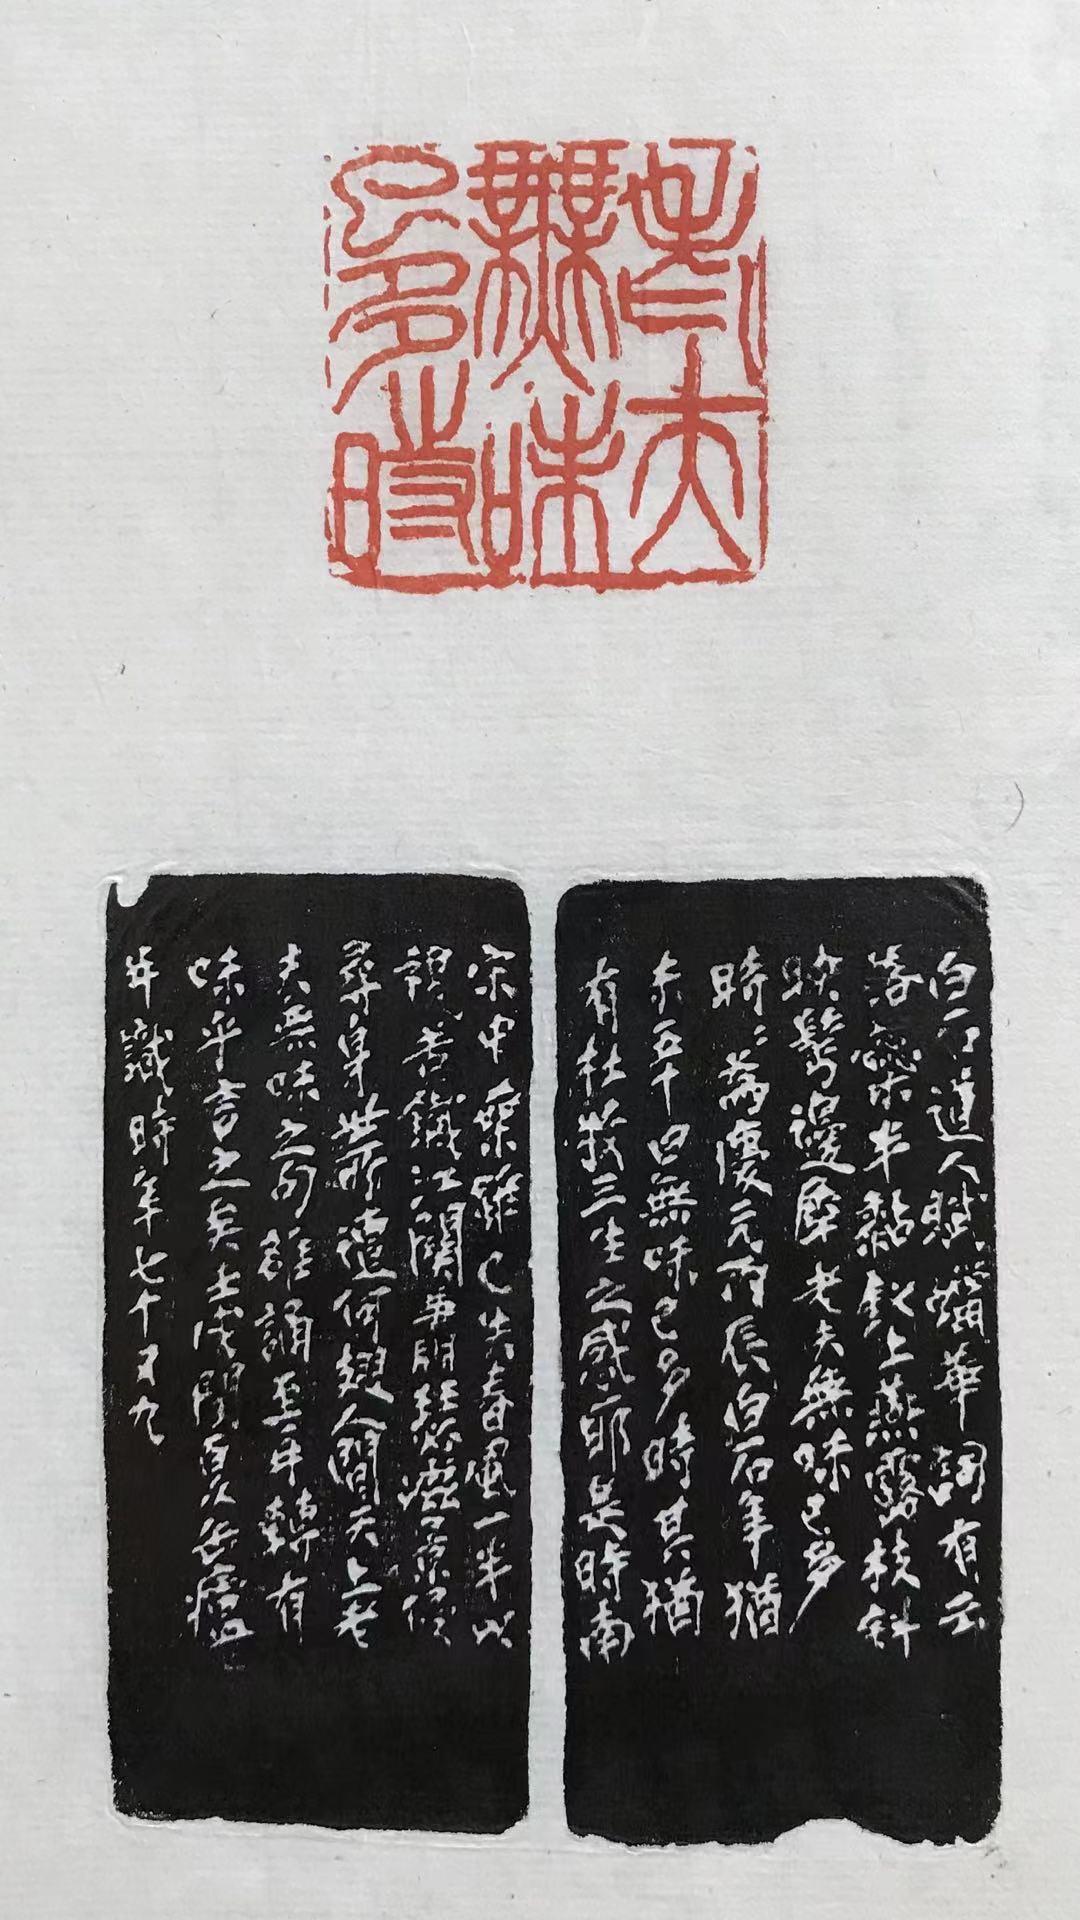 老夫
無味
已多時
白石道人賦蠟華詞有云
落蘂半黏釵上燕露枝斜
映鬢邊犀老夫無味已多
時〻為慶元丙辰白石年猶
未五十曰無味已多時其猶
有杜牧三生之感耶是時南
宋中葉雖已失春風一半以
視老鐵江關事
身世所遭何翅人間天上老
夫無味之句雒誦至再轉有
味乎言之矣壬戌閏夏缶廬
并識時年七十又九